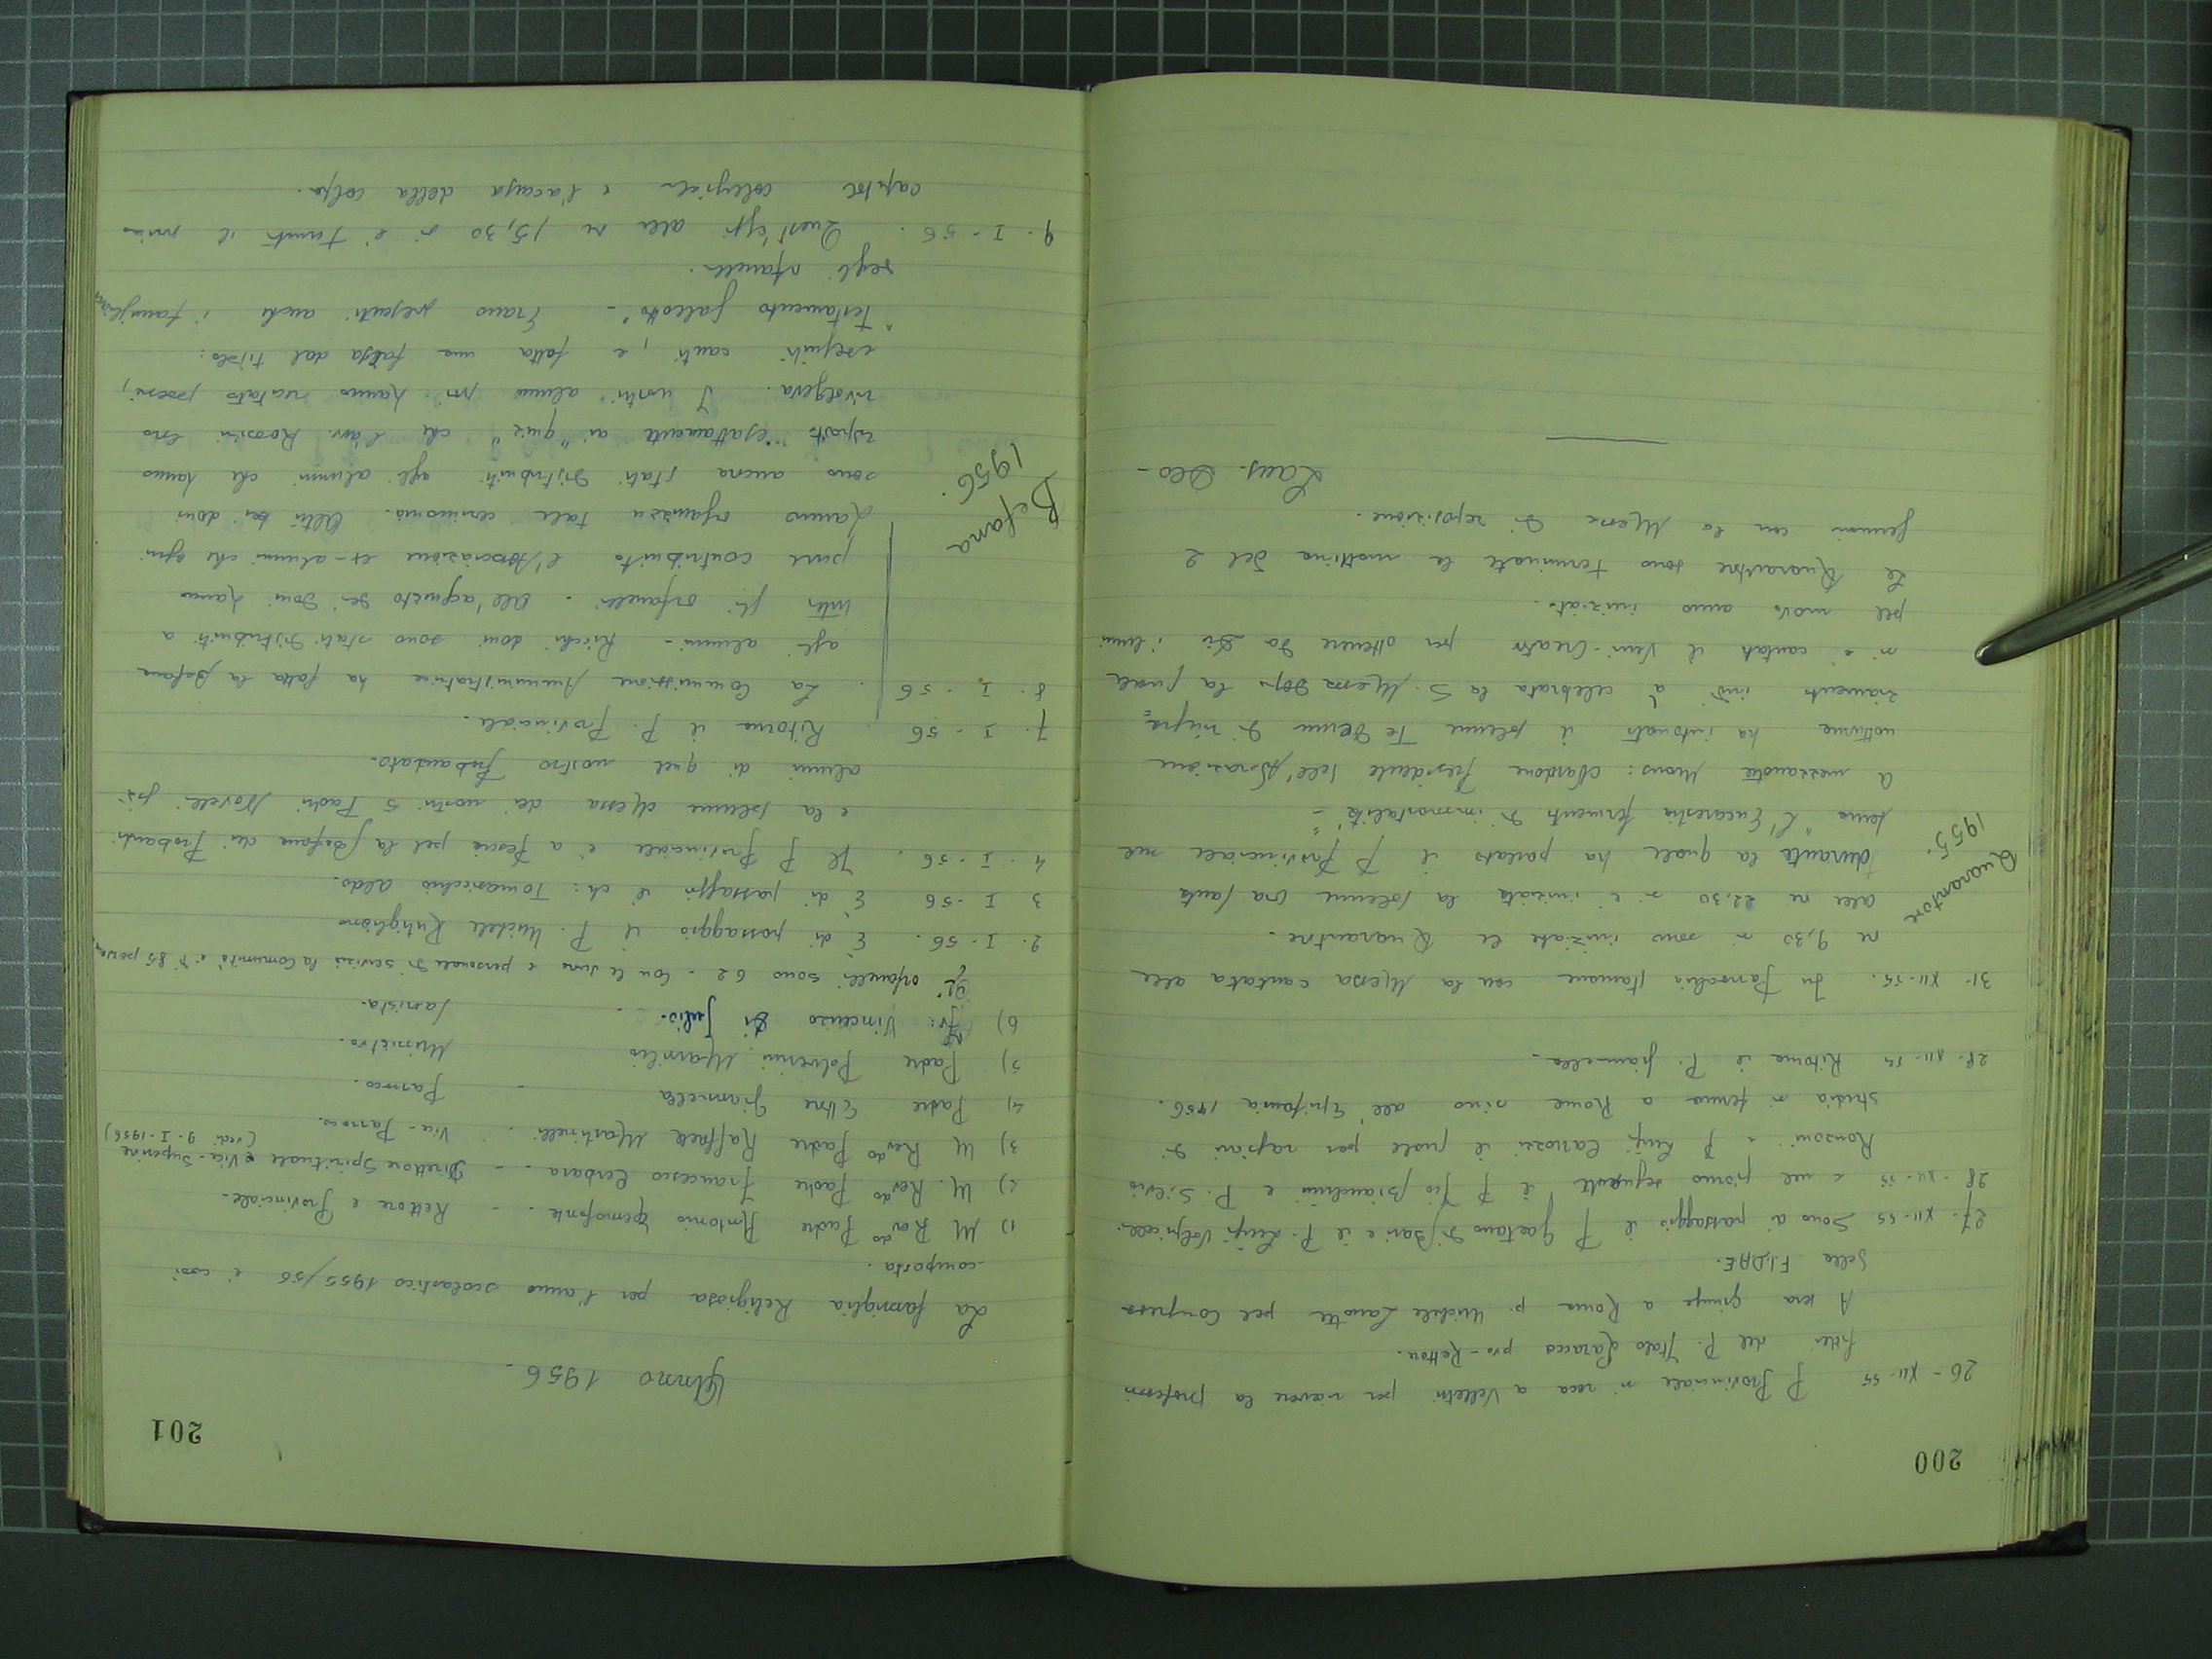 200
26 - XII - 55 P. Provinciale si reca a Velletri per ricevere la profess.
del P. Italo Laracca pro-Rettore.
A sera giunge a Roma p. Michele per Congresso
della F.I.D.A.E.
27 - XII - 55 Sono di passaggio il P. Gaetano Di Bari e il P. Luigi Volpicelli.
28 - XII - 55 e nel giorno seguente il P. Pio Bianchini e P. Silvio
e P. Luigi Carrozzi il quale per ragioni di
studio si ferma a Roma sino all'Epifania 1956.
28 - XII - 55 Ritorna il P. Giannella
31 - XII - 55. In Parrocchia stamane con la Messa cantata alle
re 9,30 si sono iniziate le Quarantore.
Quarantore
1955.
alle re 22,30 si è iniziata la solenne Ora santa
durante la quale ha parlato il P. Provinciale sul
tema "L'Eucarestia fermento di immortalità" -
A mezzanotte Mons: Nardone Presidente dell'Adorazione
notturna ha intonato il solenne Te Deum di ringra=
ziamento indi à celebrata la S. Messa dopo la quale
si è cantato il Veni-Creator per ottenere da Dio i lumi
pel nuovo anno iniziato.
Le Quarantore sono terminate la mattina del 2
gennaio con la Messa di reposizione.
Laus. Deo -
201
Anno 1956.-
La famiglia Religiosa per l'anno scolastico 1955/56 è così
composta.
1) M Rev.do Padre Antonio - - Rettore e Provinciale.
2) M. Rev.do Padre Francesco Cerbara. - - Direttore Spirituale e Vice-Superiore
(vedi 9-I-1956)
3) M Rev.do Padre Raffaele Martinelli. . Vice-Parroco.
4) Padre Ettore Giannella - Parroco.
5) Padre Polverini Marsilio Ministro.
6) Fr: Vincenzo Di Julio. . Sacrista.
Gli orfanelli sono 62 - Con le suore e personale di servizio la Comunità è di 85 persone
2. I - 56. È di passaggio il P. Michele Rutigliano
3 I - 56 È di passaggio il ch: Tomasicchio Aldo.
4 - I - 56. Il P. Provinciale è a Pescia pel la Befana dei Probandi
e la solenne Messa dei nostri 5 Padri Novelli già
alunni di quel nostro Probandato.
7. I - 56 Ritorna il P. Provinciale.
8. I - 56 . La Commissione Amministratrice ha fatta la Befana
Befana
1956.
agli alunni - Ricchi doni sono stati distribuiti a
tutti gli orfanelli. All'acquisto dei doni hanno
pure contribuito l'Associazione ex-alunni che ogni
hanno organizza tale cerimonia. Altri doni
sono ancora stati distribuiti agli alunni che hanno
risposto esattamente ai "quiz" che l'avv. Rossini loro
rivolgeva. I nostri alunni poi hanno recitato poesie,
eseguiti canti, e fatta una farsa dal titolo:
"Testamento Galeotto" - Erano presenti anche i famigliari
degli orfanelli.
9. I - 56. Quest'oggi alle re 15,30 si è tenuto il primo
capitolo collegiale e l'accusa della colpa.